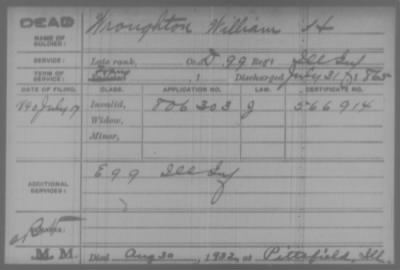 DEAD
NAME OF SOLDIER: Wroughton William H
SERVICE: Late rank, Co. D, 99 Reg't Ill Inf
TERM OF SERVICE: Discharged July 31, 1865
DATE OF FILING. CLASS. APPLICATION NO. LAW. CERTIFICATE NO.
1890 July 19 Invalid, 806303 J 566914
Widow,
Minor,
ADDITIONAL SERVICES: E 99 Ill Inf
M. M. Died Aug 30, 1902, at Pittsfield, Ill.